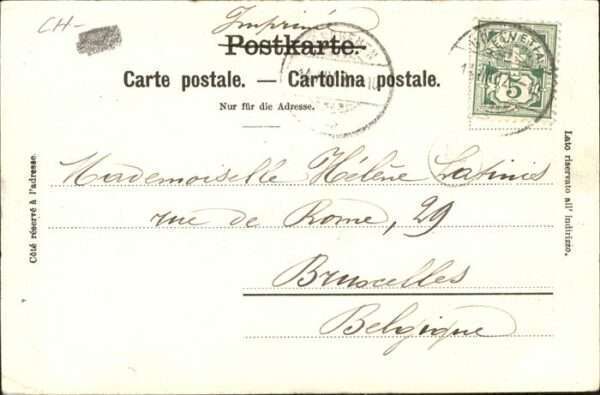 CH-
Imprimé
Postkarte.
Carte postale. — Cartolina postale.
Nur für die Adresse.
HELVETIA
5
Côté réservé à l'adresse.
Lato riservato all' indirizzo.
Mademoiselle Hélène Latinis
rue de Rome, 29
Bruxelles
Belgique